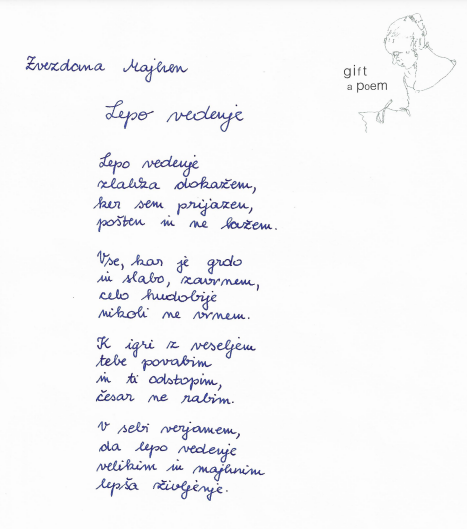 Zvezdana Majhen
gift
a poem
Lepo vedenje
Lepo vedenje
zlahka dokažem,
ker sem prijazen,
pošten in ne lažem.
Vse, kar je grdo
in slabo, zavrnem,
celo hudobije
nikoli ne vrnem.
K igri z veseljem
tebe povabim
in ti odstopim,
česar ne rabim.
V sebi verjamem,
da lepo vedenje
velikim in majhnim
lepša življenje.